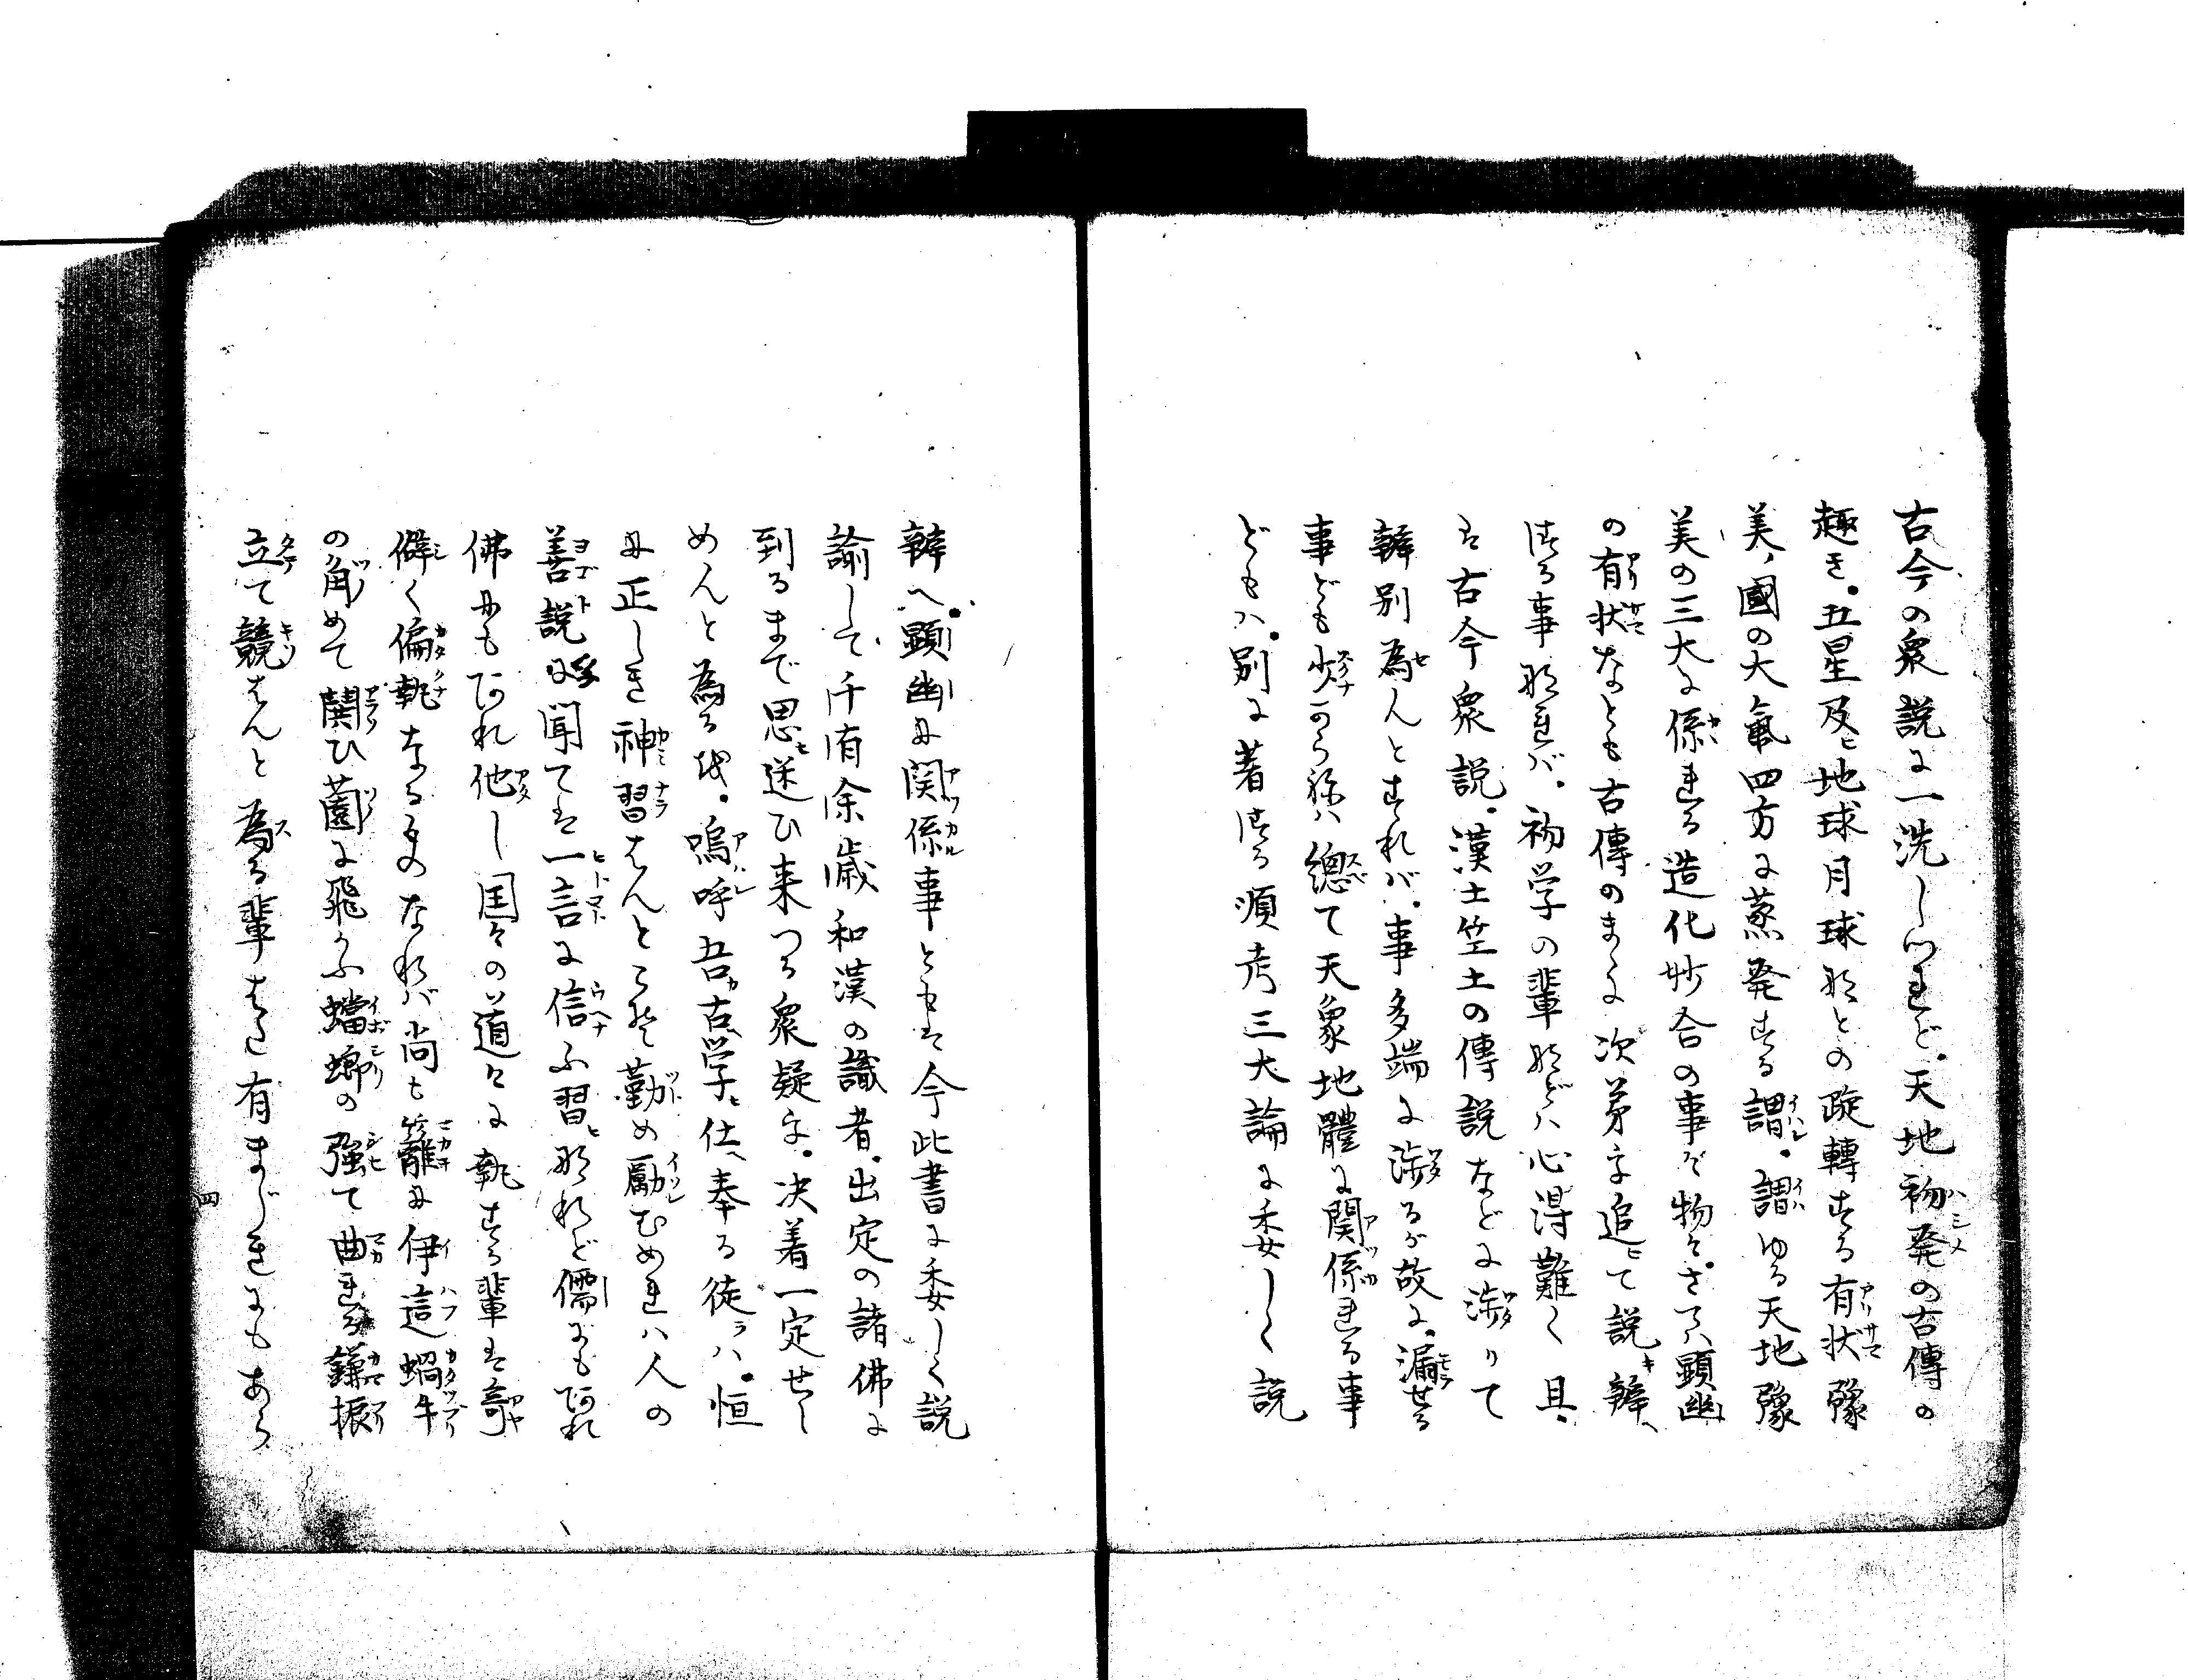 古今の衆説に一洗しつれど。天地初発の古傳の
趣き。五星及ヒ地球月球などの旋轉する有状豫
美ノ國の大氣四方に蒸発する謂。謂ゆる天地豫
美の三大に係れる造化妙合の事ぞ物そ。さてハ顕幽
の有状なとも古傳のまゝに次第を追ヒて説キ辨ヘ
つる事なれバ。初学の輩などハ心得難く且ツ
は古今衆説。漢土竺土の傳説などに渉りて
辨別為んとすれバ。事多端に渉るが故に。漏せる
事ども少からねハ總て天象地體に関係れる事
どもハ。別に著はせる順考三大論に委しく説
辨へ。顕幽に関係事ともは今此書に委しく説
諭して千有余歳和漢の識者。出定の諸佛に
到るまで思ヒ迷ひ来つる衆疑を。决着一定せし
めんと為るを。嗚呼吾古学ヒ仕ヘ奉る徒ラハ。恒
に正しき神習はんとこそ勤め励むめれハ人の
善説を聞ては一言に信ふ習ヒなれど儒にもあれ
佛にもあれ他し国々の道々に執する輩は奇
僻く偏執なるものなれバ尚も籠に伊這蝸牛
の角めて鬪ひ薗に飛かふ蟷螂の強て曲れる鎌振
立て競はんと為る輩はた有まじきにもあら
四